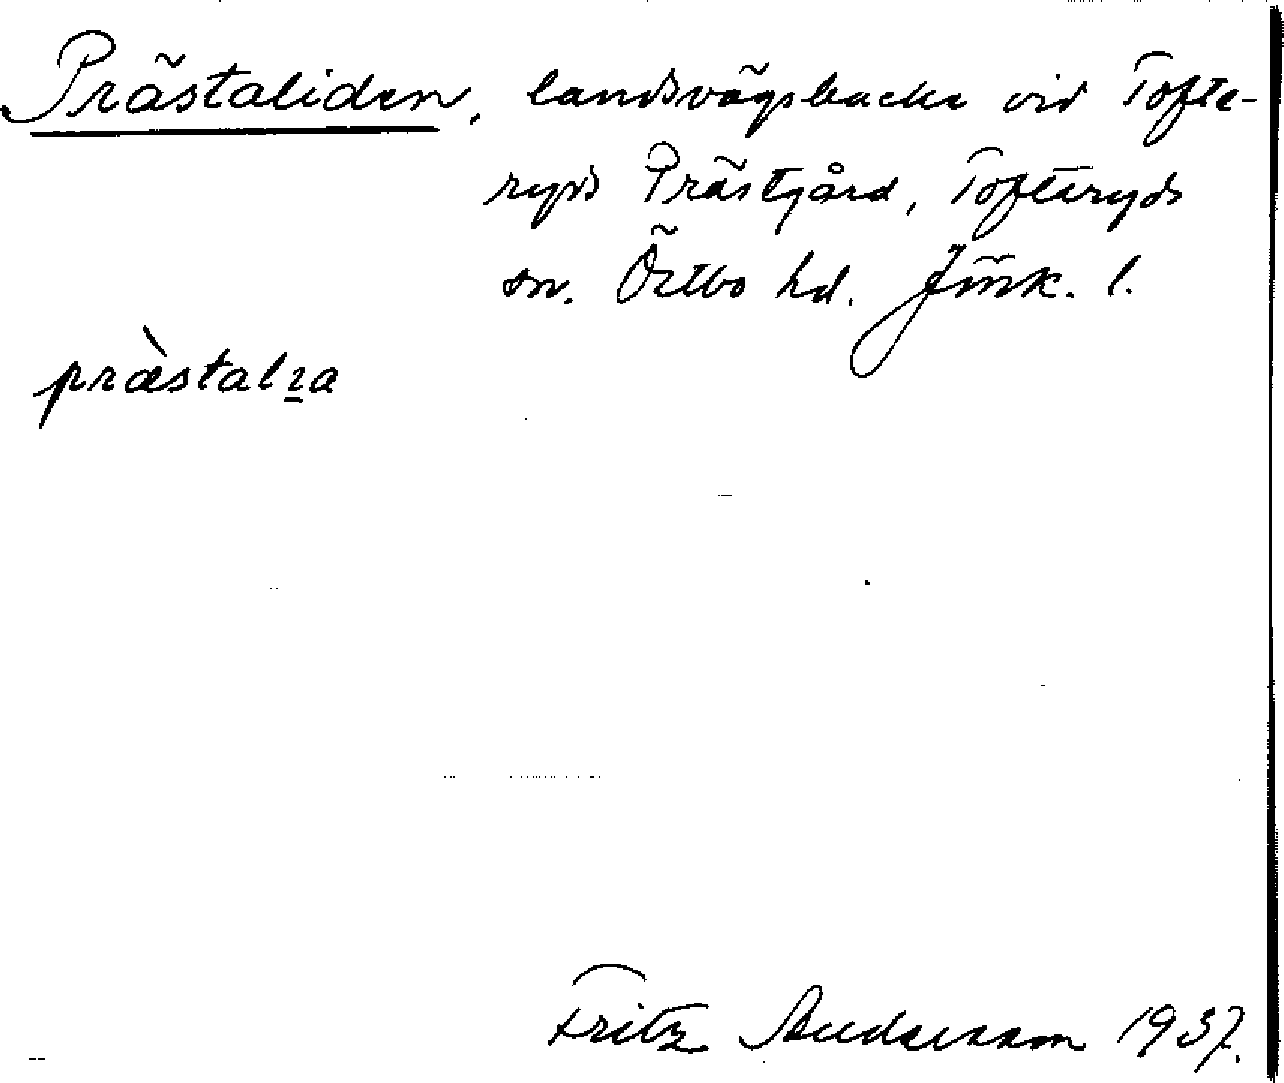 Prästaliden, landsvägsbacke vid Tofte-
ryds Prästgård, Tofteryds
sn. Östbo hd. Jönk. l.
præ̀stalɩa
Fritz Andersson 1937.